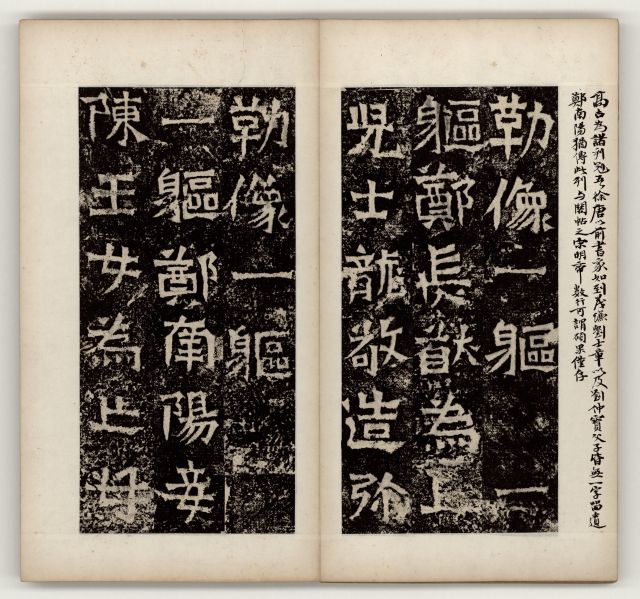 高古為諸刊冠唐以前書家如到茂劉士章以及劉仲寶父子皆無一字留遺
鄭南陽猶傳此刊与閣帖之宋明帝數行可謂碩果僅存
勒像一軀一
軀鄭長猷為亡
兒士龍敬造弥
勒像一軀
一軀鄭南陽妾
陳玉女為亡母